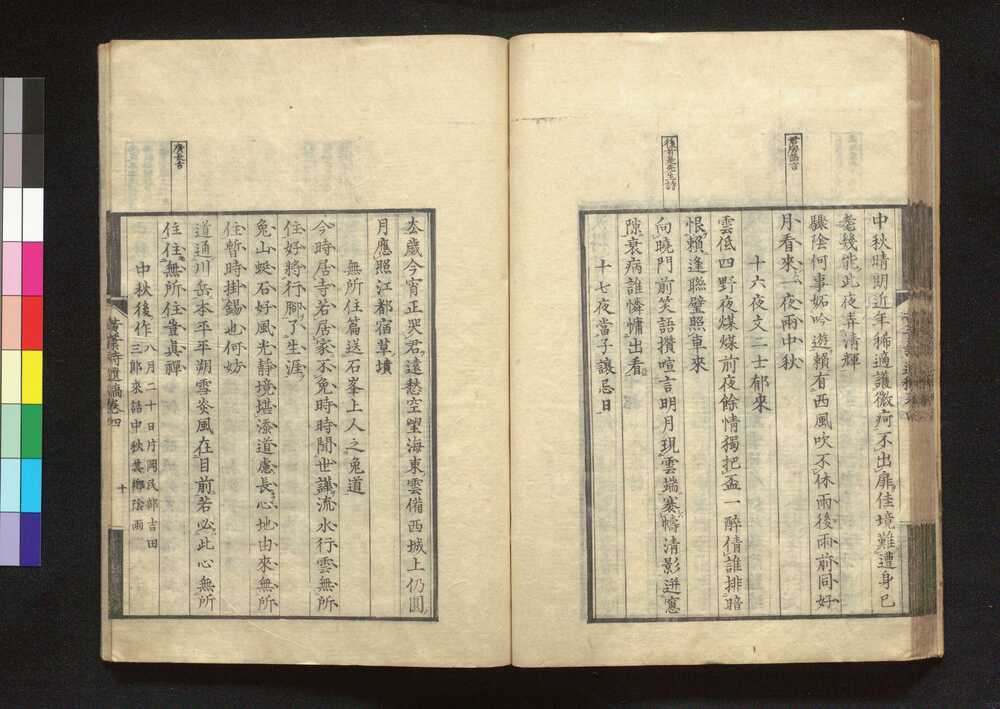 中秋晴明近年稀適護微痾不出扉佳境難遭身已
老幾能此夜弄清輝
驟陰何事妬吟遊賴有西風吹不休雨後雨前同好
月看來一夜兩中秋
十六夜文二士郁來
雲低四野夜煤煤前夜餘情獨把盃一醉倩誰排暗
恨賴逢聯璧照車來
向曉門前笑語攢喧言明月現雲端褰幬清影迸窻
隙衰病誰憐慵出看
十七夜當子讓忌日
去歲今宵正哭君遠愁空望海東雲備西城上仍圓
月應照江都宿草墳
無所住篇送石峯上人之兔道
今時居寺若居家不免時時聞世譁流水行雲無所
住好將行腳了生涯
兔山蜓石好風光靜境堪添道慮長心地由來無所
住暫時掛錫也何妨
道通川岳本平平朔雪炎風在目前若必此心無所
住住無所住豈真禪
中秋後作八月二十日片岡民部吉田
三郎來話中秋其鄉陰雨
黃葉夕陽邨舍詩遺稿卷四
十